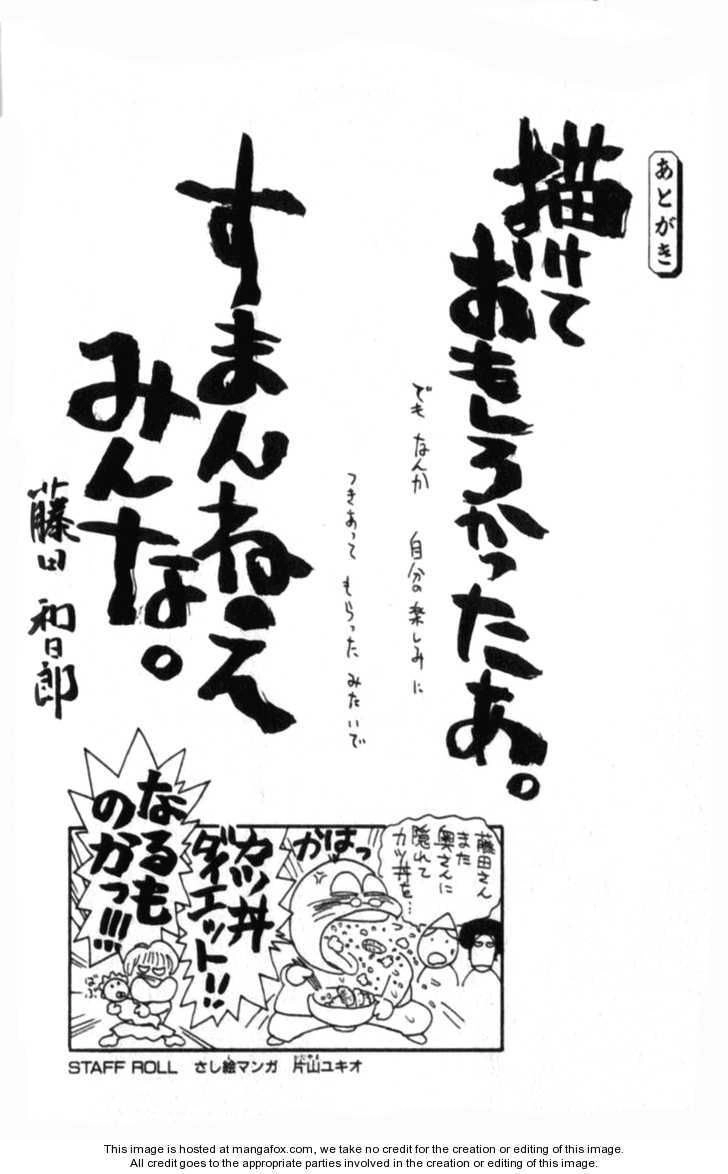 あとがき
描けて
おもしろかったあ。
でも なんか 自分の楽しみに
つきあって もらった みたいで
すまんねえ
みんな。
藤田 和日郎
藤田さん
また
奥さんに
隠れて
カツ丼を…
かはっ
カツ丼
ダイエット!!
なるも
のかっ!!!
ばぶ
STAFF ROLL さし絵マンガ 片山ユキオ
This image is hosted at mangafox.com, we take no credit for the creation or editing of this image.
All credit goes to the appropriate parties involved in the creation or editing of this image.